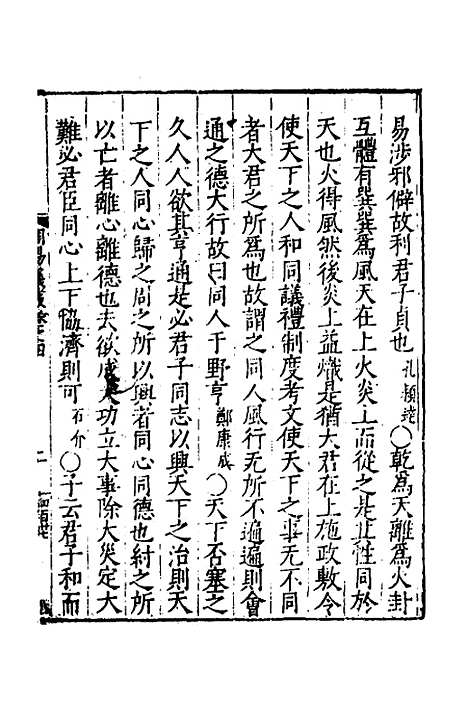 易涉邪僻故利君子貞也孔穎達○乾爲天離爲火卦
互體有巽巽爲風天在上火炎上而從之是其性同於
天也火得風然後炎上益熾是猶大君在上施政敎令
使天下之人和同議禮制度考文使天下之事无不同
者大君之所爲也故謂之同人風行无所不遍遍則會
通之德大行故曰同人于野亨鄭康成○天下否塞之
久人人欲其亨通是必君子同志以興天下之治則天
下之人同心歸之周之所以興者同心同德也紂之所
以亡者離心離德也夫欲成大功立大事除大災定大
難必君臣同心上下協濟則可石介○子云君子和而